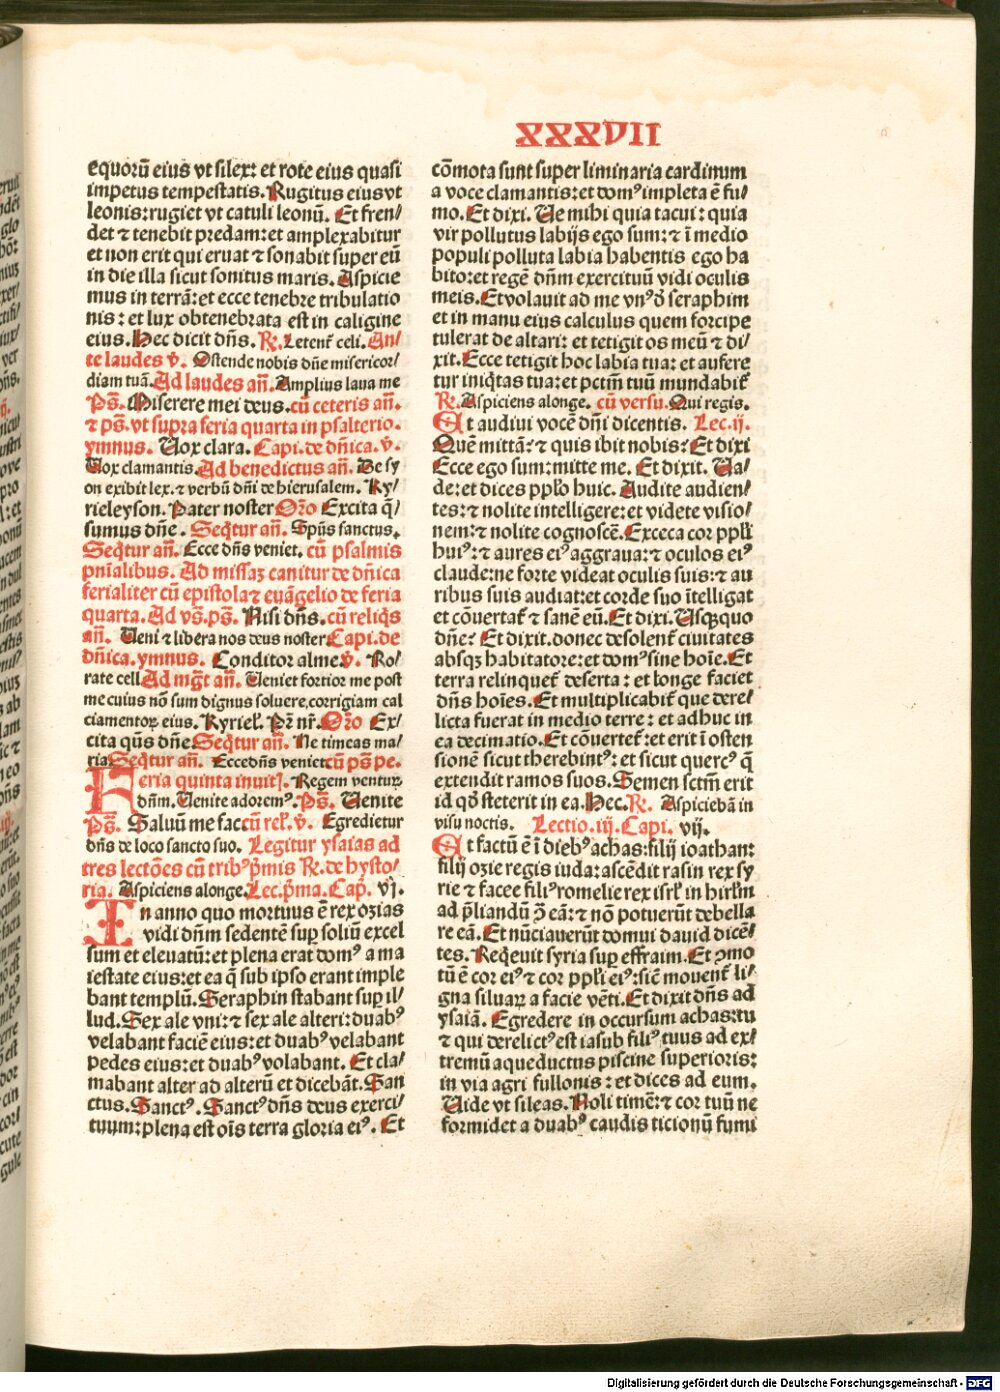 XXXVII
equorū eius vt silex: et rote eius quasi
impetus tempestatis. Rugitus eius vt
leonis: rugiet vt catuli leonū. Et fren/
det ⁊ tenebit predam: et amplexabitur
et non erit qui eruat ⁊ sonabit super eū
in die illa sicut sonitus maris. Aspicie
mus in terrā: et ecce tenebre tribulatio
nis: et lux obtenebrata est in caligine
eius. Hec dicit dn̄s. R. Letent᷑ celi. An/
te laudes v̄. Ostende nobis dn̄e misericor/
diam tuā. Ad laudes an̄. Amplius laua me
Ps̄. Miserere mei deus. cū ceteris an̄.
⁊ ps̄. vt supra feria quarta in psalterio.
ymnus. Uox clara. Capi. de dn̄ica. v̄.
Uox clamantis. Ad benedictus an̄. De sy
on exibit lex. ⁊ verbū dn̄i de hierusalem. Ky/
rieleyson. Pater noster Or̄o Excita q̄/
sumus dn̄e. Seq̄tur an̄. Spūs sanctus.
Seq̄tur an̄. Ecce dn̄s veniet. cū psalmis
pn̄ialibus. Ad missaꝫ canitur de dn̄ica
ferialiter cū epistola ⁊ euāgelio de feria
quarta. Ad vs̄. ps̄. Nisi dn̄s. cū reliq̄s
an̄. Ueni ⁊ libera nos deus noster Capi. de
dn̄ica. ymnus. Conditor alme v̄. Ro/
rate celi Ad mḡt an̄. Ueniet fortior me post
me cuius nō sum dignus soluere, corrigiam cal
ciamentoꝝ eius. Kyriel᷑. Pr̄ nr̄. Or̄o Ex/
cita qūs dn̄e. Seq̄tur an̄. Ne timeas ma/
ria Seq̄tur an̄. Ecce dn̄s veniet cū ps̄ pe.
Feria quinta inuit᷑. Regem venturꝫ
dn̄m. Uenite adoremꝰ. Ps̄. Uenite
Ps̄. Saluū me fac cū rel᷑. v̄. Egredietur
dn̄s de loco sancto suo. Legitur ysaias ad
tres lectōes cū tribꝰ p̄mis R. de hysto/
ria. Aspiciens alonge. Lec. p̄ma. Cap̄. vj.
In anno quo mortuus ē rex ozias
vidi dn̄m sedentē suꝑ soliū excel
sum et eleuatū: et plena erat domꝰ a ma
iestate eius: et ea q̄ sub ipso erant imple
bant templū. Seraphin stabant suꝑ il/
lud. Sex ale vni: ⁊ sex ale alteri: duabꝰ
velabant faciē eius: et duabꝰ velabant
pedes eius: et duabꝰ volabant. Et cla/
mabant alter ad alterū et dicebāt. San
ctus. Sanctꝰ. Sanctꝰ dn̄s deus exerci/
tuum: plena est oīs terra gloria eiꝰ. Et
cōmota sunt super liminaria cardinum
a voce clamantis: et domꝰ impleta ē fu/
mo. Et dixi. Ue mihi quia tacui: quia
vir pollutus labijs ego sum: ⁊ ī medio
populi polluta labia habentis ego ha
bito: et regē dn̄m exercituū vidi oculis
meis. Et volauit ad me vnꝰ d̄ seraphim
et in manu eius calculus quem forcipe
tulerat de altari: et tetigit os meū ⁊ di/
xit. Ecce tetigit hoc labia tua: et aufere
tur iniq̄tas tua: et pctm̄ tuū mundabit᷑
R. Aspiciens alonge. cū versu. Qui regis.
Et audiui vocē dn̄i dicentis. Lec. ij.
Quē mittā? ⁊ quis ibit nobis? Et dixi
Ecce ego sum: mitte me. Et dixit. Ua/
de: et dices pplo huic. Audite audien/
tes: ⁊ nolite intelligere: et videte visio/
nem: ⁊ nolite cognoscē. Exceca cor ppli
huiꝰ: ⁊ aures eiꝰ aggraua: ⁊ oculos eiꝰ
claude: ne forte videat oculis suis: ⁊ au
ribus suis audiat: et corde suo ītelligat
et cōuertat᷑ ⁊ sanē eū. Et dixi. Usqꝫquo
dn̄e? Et dixit. donec desolent᷑ ciuitates
absqꝫ habitatore: et domꝰ sine hoīe. Et
terra relinquet᷑ deserta: et longe faciet
dn̄s hoīes. Et multiplicabit᷑ que dere/
licta fuerat in medio terre: et adhuc in
ea decimatio. Et cōuertet᷑: et erit ī osten
sionē sicut therebintꝰ: et sicut quercꝰ q̄
extendit ramos suos. Semen sctm̄ erit
id qd̄ steterit in ea. Hec. R. Aspiciebā in
visu noctis. Lectio. iij. Capi. vij.
Et factū ē ī diebꝰ achas: filij ioathan:
filij ozie regis iuda: ascēdit rasin rex sy
rie ⁊ facee filiꝰ romelie rex isrl̄ in hirlm̄
ad p̄liandū ꝯ eā: ⁊ nō potuerūt debella
re eā. Et nūciauerūt domui dauid dicē/
tes. Req̄euit syria suꝑ effraim. Et ꝯmo
tū ē cor eiꝰ ⁊ cor ppli eiꝰ: sic̄ mouent᷑ li/
gna siluaꝝ a facie vēti. Et dixit dn̄s ad
ysaiā. Egredere in occursum achas: tu
⁊ qui derelictꝰ est iasub filiꝰ tuus ad ex/
tremū aqueductus piscine superioris:
in via agri fullonis: et dices ad eum.
Uide vt sileas. Noli timē: ⁊ cor tuū ne
formidet a duabꝰ caudis ticionū fumi
Digitalisierung gefördert durch die Deutsche Forschungsgemeinschaft - DFG